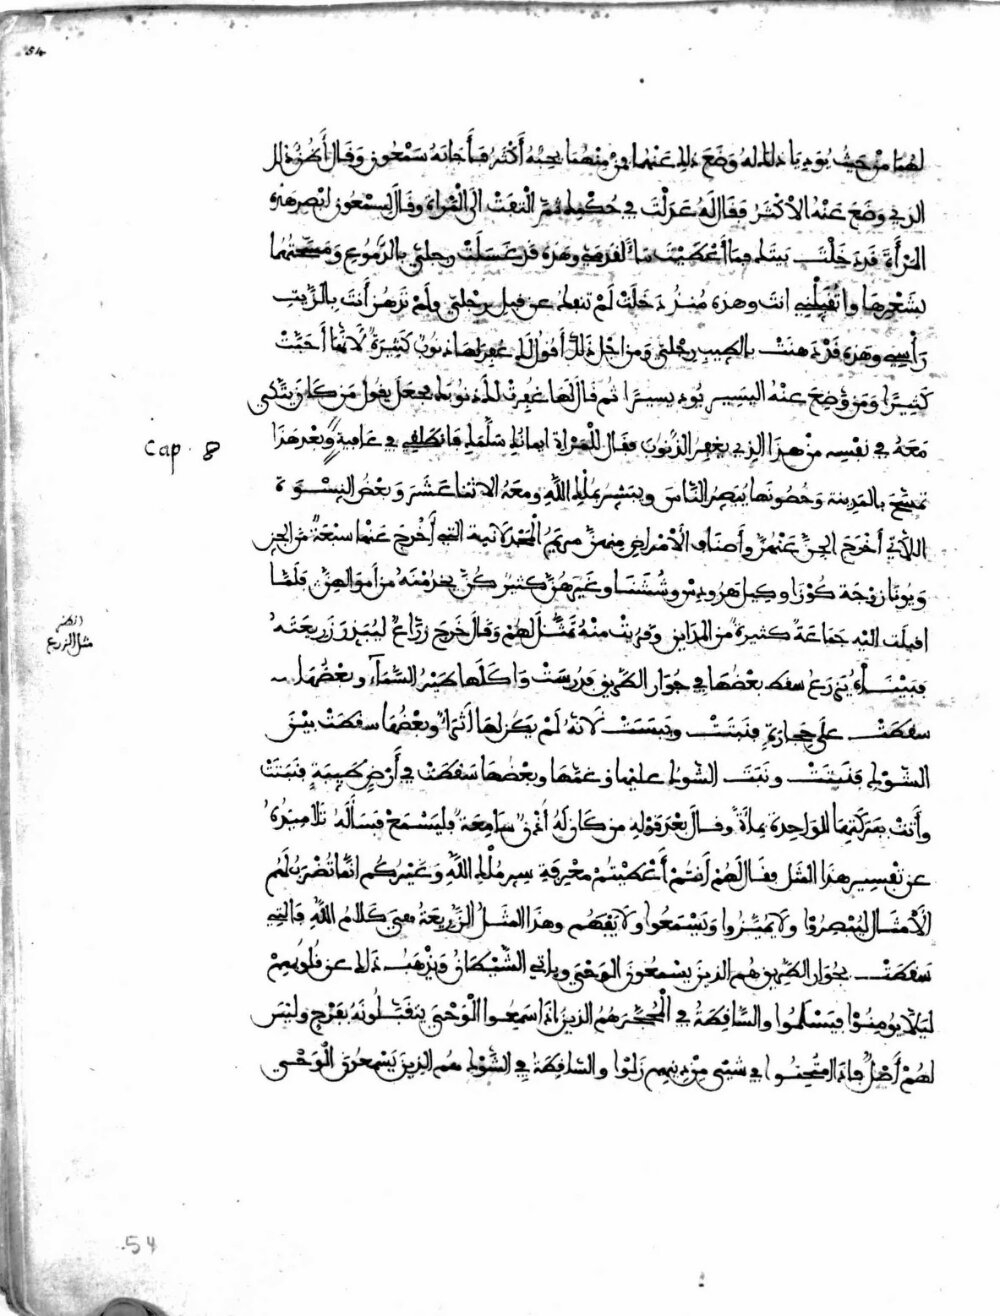 54
لهما من حيث يوديا ذلك له وضع ذلك عنهما فمن منهما يحبه أكثر فأجابه سمعون وقال أظن ذلك
الذي وضع عنه الأكثر فقال له عدلت في حكمك ثم التفت الى المراة وقال لسمعون ابصر هذه
المرأة قد دخلت بيتك فما أعطيت ماء لقدمي وهذه قد غسلت رجلي بالدموع ومسحتهما
بشعرها وما تقبلني انت وهذه منذ دخلت لم تنفك عن قبل رجلي ولم تدهن أنت بالزيت
رأسي وهذه قد دهنت بالطيب رجلي ومن اجل ذلك أقول لك غفر لها ذنوب كثيرة لانها أحبت
كثيرا ومن وضع عنه اليسير يود يسيرا ثم قال لها غفرت لك ذنوبك فجعل يقول من كان يتكي
معه في نفسه من هذا الذي يغفر الذنوب فقال للمراة ايمانك سلمك فانطلقي في عافية وبعد هذا
Cap. 8
تمشى بالمدينة وحصونها يبصر الناس ويبشر بملك الله ومعه الاثنا عشر وبعض النسوة
اللاتي أخرج الجن عنهن وأصناف الأمراض منهن مريم المجدلانية التي أخرج عنها سبعة من الجن
ويونا زوجة كوزا وكيل هرودس وشسنا وغيرهن كثير كن يخدمنه من أموالهن فلما
اقبلت اليه جماعة كثيرة من المداين وقربت منه تمثل لهم وقال خرج زراع ليبذر زريعته
انظر
مثل الزرع
فبينا يزرع سقط بعضها في جوار الطريق فدرست واكلها طير السماء وبعضها
سقطت على حجارة فنبتت ويبست لانه لم يكن لها أثرا وبعضها سقطت بين
الشوك فنبتت ونبت الشوك عليها وغمها وبعضها سقطت في أرض طيبة فنبتت
وأتت بتزكيتها للواحدة بماة وقال بعد قوله من كان له أذن سامعة فليسمع فسأله تلاميذه
عن تفسير هذا المثل فقال لهم أنتم أعطيتم معرفة سر ملك الله وغيركم انما تضرب لهم
الأمثال ليبصروا ولا يميزوا ويسمعوا ولا يفهم وهذا المثل الزريعة هي كلام الله فالتي
سقطت بجوار الطريق هم الذين يسمعون الوحي وياتي الشيطان ويذهب ذلك عن قلوبهم
ليلا يومنوا فيسلموا والساقطة في الحجر هم الذين اذا سمعوا الوحي يتقبلونه بفرح وليس
لهم أصل فاذا امتحنوا في شيى من دينهم زلوا والساقطة في الشوك هم الذين يسمعون الوحي
54